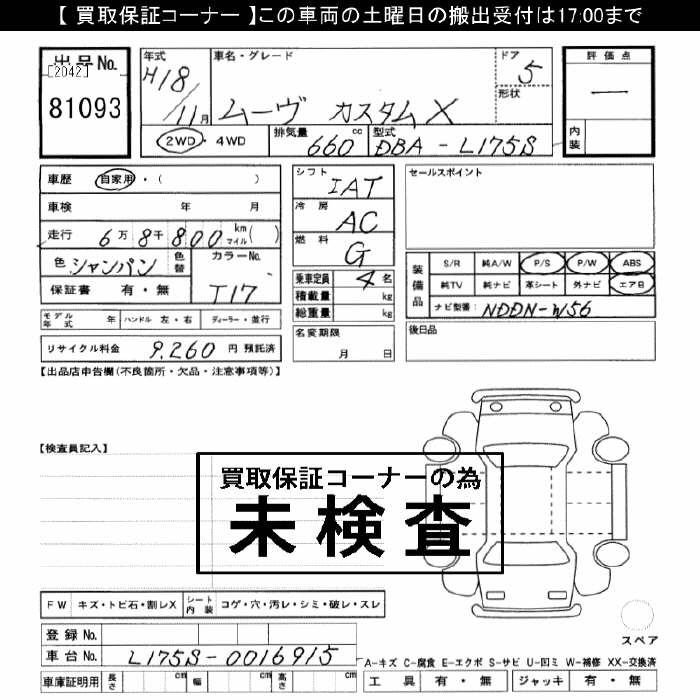 【 買取保証コーナー 】この車両の土曜日の搬出受付は17:00まで
出品No.
[2042]
81093
年式
H18/11月
車名・グレード
ムーヴ カスタムX
ドア
5
形状
2WD・4WD
排気量 660 cc
型式 DBA-L175S
評価点
一
内装
車歴 自家用・( )
車検 年 月
走行 6万8千800 km マイル ( )
色 シャンパン 色替
カラーNo.
T17
保証書 有・無
シフト
IAT
冷房
AC
燃料
G
乗車定員 4 名
積載量 kg
総重量 kg
セールスポイント
装備品
S/R 純A/W P/S P/W ABS
純TV 純ナビ 革シート 外ナビ エアB
ナビ型番: NDDN-W56
モデル年式 年 ハンドル 左・右 ディーラー・並行
名変期限
月 日
後日品
リサイクル料金 9,260 円 預託済
【出品店申告欄(不良箇所・欠品・注意事項等)】
【検査員記入】
買取保証コーナーの為
未検査
FW キズ・トビ石・割レX
シート内装 コゲ・穴・汚レ・シミ・破レ・スレ
スペア
登録No.
車台No. L175S-0016915
車庫証明用 長さ cm 幅 cm 高さ cm
A-キズ C-腐食 E-エクボ S-サビ U-凹ミ W-補修 XX-交換済
工具 有・無 ジャッキ 有・無